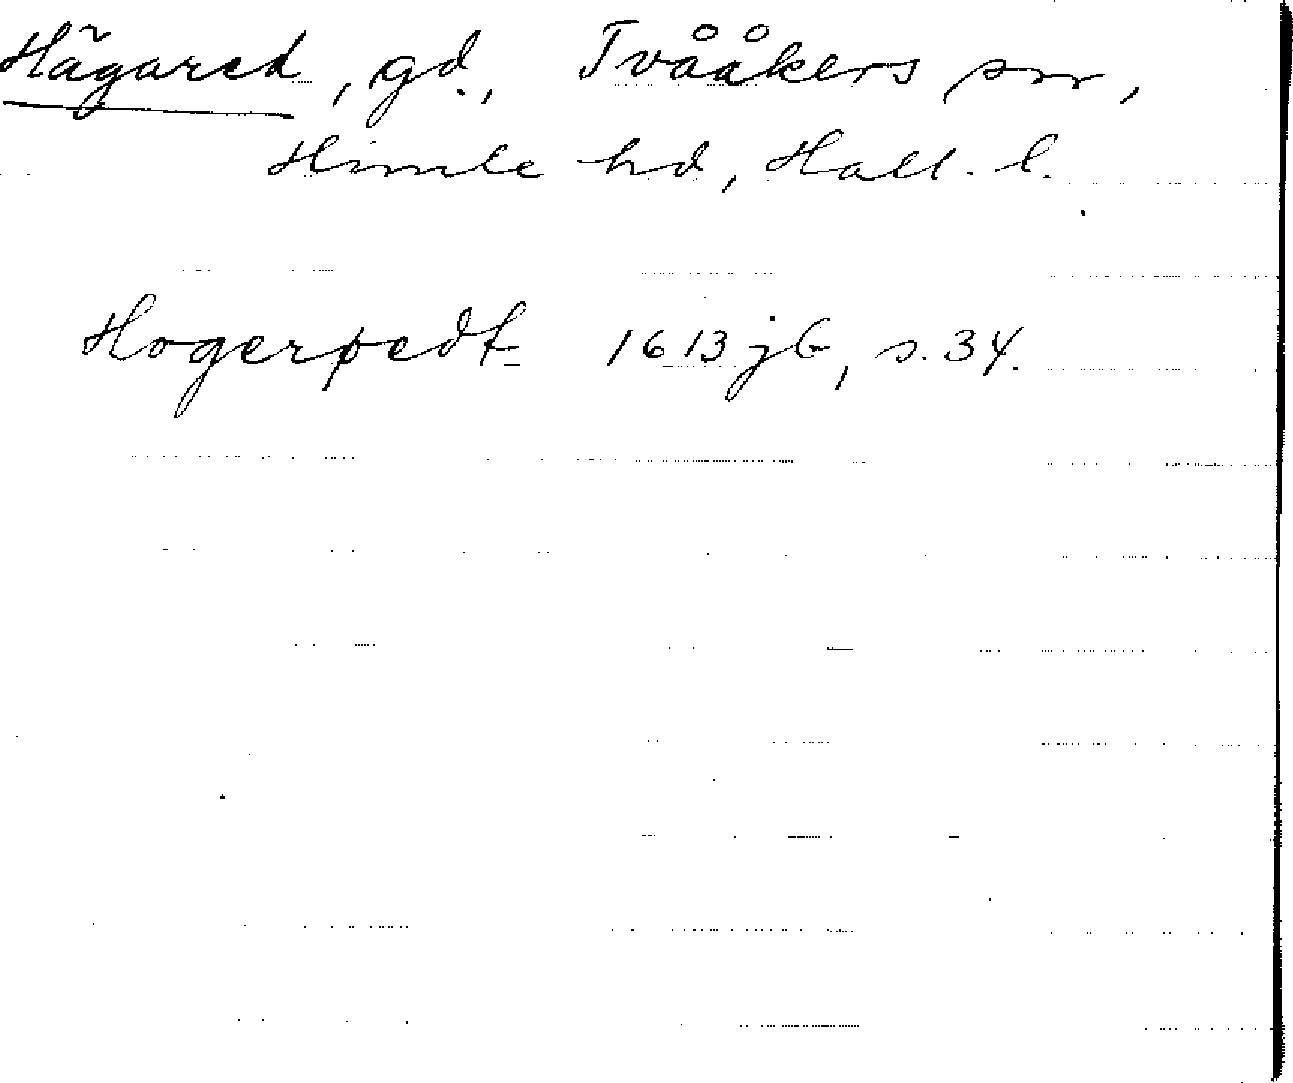 Hägared, gd., Tvååkers sn,
Himle hd, Hall. l.
Hogerpedt 1613 jb, s. 34.